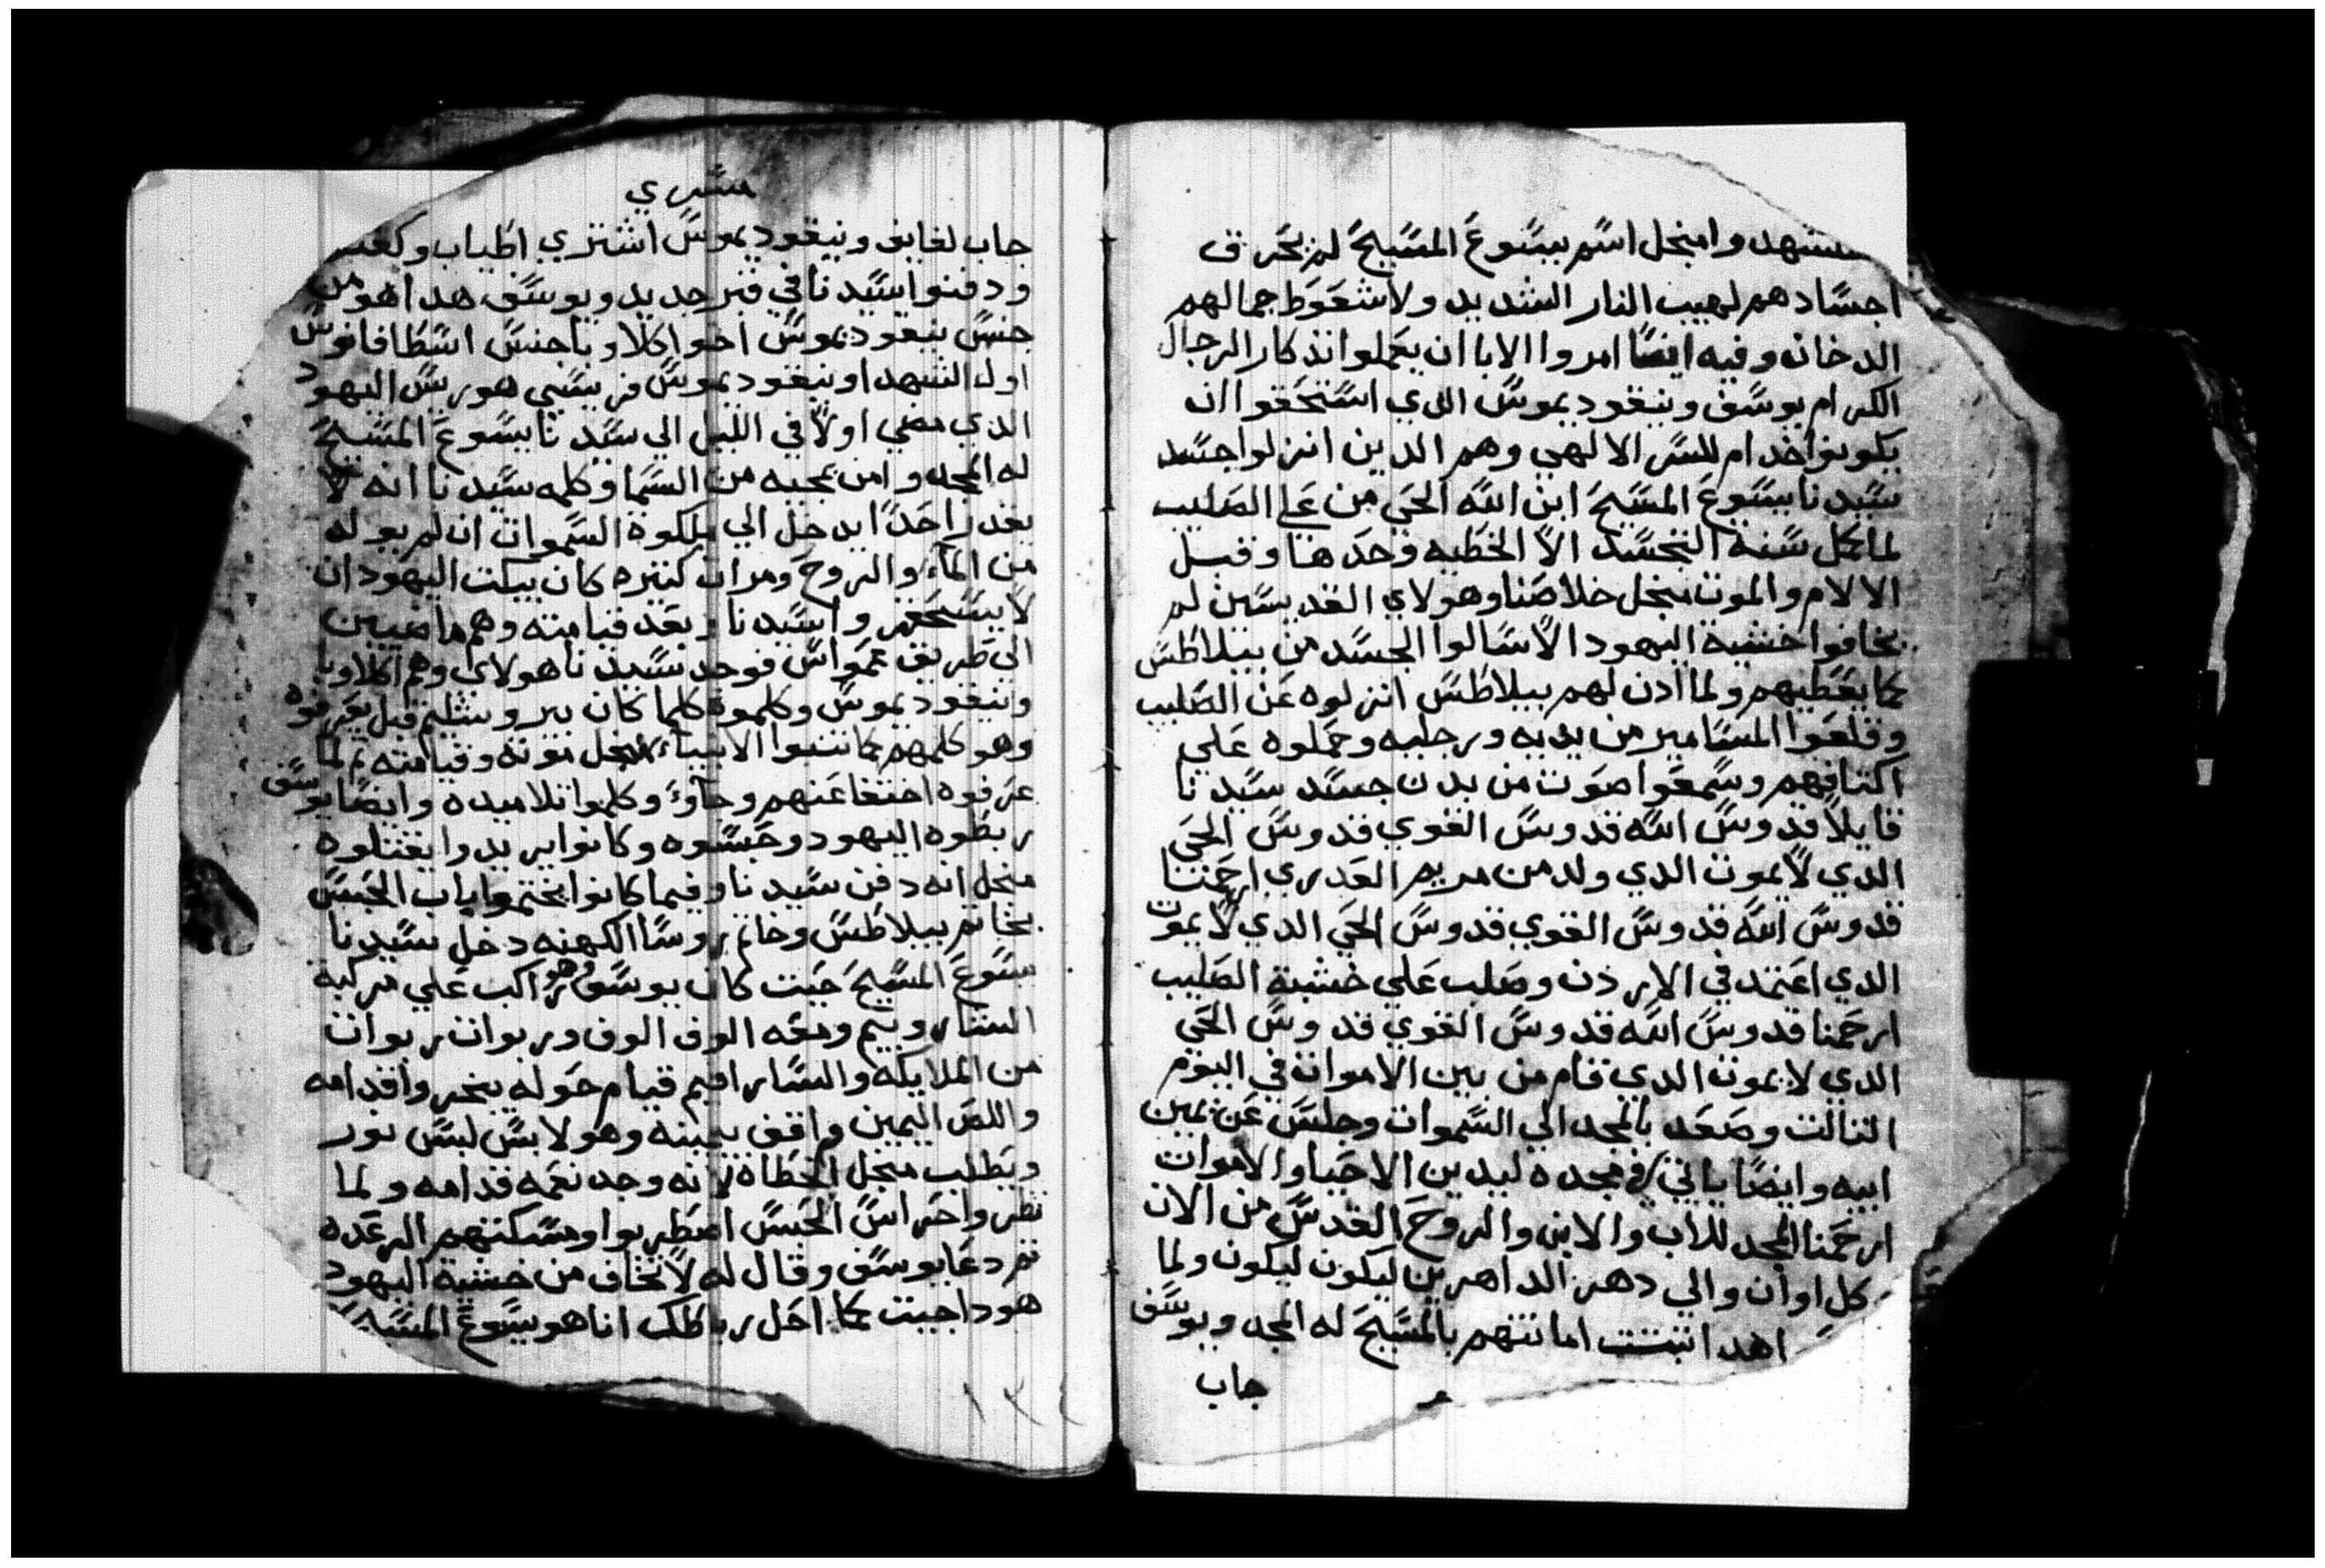 استشهدوا منجل اسم يسوع المسيح لم يحرق
اجسادهم لهيب النار الشديد ولا شعوط جمالهم
الدخان وفيه ايضا امروا الابا ان يعملوا تذكار الرجال
الكرام يوسف ونيقوديموس الدي استحقوا ان
يكونوا خدام للسر الالهي وهم الدين انزلوا جسد
سيدنا يسوع المسيح ابن الله الحي من علي الصليب
لما كمل سنة التجسد الا الخطيه وحدها وقبل
الالام والموت منجل خلاصنا وهولاي القديسين لم
يخافوا خشية اليهود الا سالوا الجسد من بيلاطس
كما يعطيهم ولما ادن لهم بيلاطس انزلوه عن الصليب
وقلعوا المسامير من يديه ورجليه وحملوه علي
اكتافهم وسمعوا صوت من بدن جسد سيدنا
قايلا قدوس الله قدوس القوي قدوس الحي
الدي لا يموت الدي ولد من مريم العدري ارحمنا
قدوس الله قدوس القوي قدوس الحي الدي لا يموت
الدي اعتمد في الاردن وصلب علي خشبة الصليب
ارحمنا قدوس الله قدوس القوي قدوس الحي
الدي لا يموت الدي قام من بين الاموات في اليوم
التالت وصعد بالمجد الي السموات وجلس عن يمين
ابيه وايضا ياتي في مجده ليدين الاحيا والاموات
ارحمنا المجد للاب والابن والروح القدس من الان
كل اوان والي دهر الداهرين ليكون ليكون ولما
اهدا تبتت امانتهم بالمسيح له المجد ويوسف
جاب
مشري
جاب لفايف ونيقوديموس اشتري اطياب وكفنـ
ودفنوا سيدنا في قبر جديد ويوسف هدا هو من
جنس نيقوديموس اخو اكلاوبا جنس اسطافانوس
اول الشهدا ونيقوديموس فريسي هو ريس اليهود
الدي مضي اولا في الليل الي سيدنا يسوع المسيح
له المجد وامن بمجيه من السما وكلمه سيدنا انه لا
يقدر احدا يدخل الي ملكوة السموات ان لم يولد
من الماء والروح ومرات كتيره كان يبكت اليهود ان
لا يستحقر واسيدنا وبعد قيامته وهم ماضيين
الي طريق عمواس فوجد سيدنا هولاي وهم اكلاوبا
ونيقوديموس وكلموه كلما كان بيروشليم قبل يعرفوه
وهو كلمهم بما تنبوا الانبياء منجل موته وقيامته تم لما
عرفوه اختفا عنهم وجاوء وكلموا تلاميده وايضا يوسف
ربطوه اليهود وحبسوه وكانوا يريدوا يقتلوه
منجل انه دفن سيدنا وفيما كانوا يختموا باب الحبس
بخاتم بيلاطس وخاتم روسا الكهنه دخل سيدنا
يسوع المسيح حيت كان يوسف وهو راكب علي مركبة
الشاروبيم ومعه الوف الوف وربوات ربوات
من الملايكه والسارافيم قيام حوله يبخروا قدامه
واللص اليمين واقف بيمينه وهو لابس لبس نور
ويطلب منجل الخطاه لانه وجد نعمه قدامه ولما
نظروا حراس الحبس اضطربوا ومسكتهم الرعده
تم دعا يوسف وقال له لا تخاف من خشية اليهود
هودا جيت كما احل رباطك انا هو يسوع المسيح
١٣٤